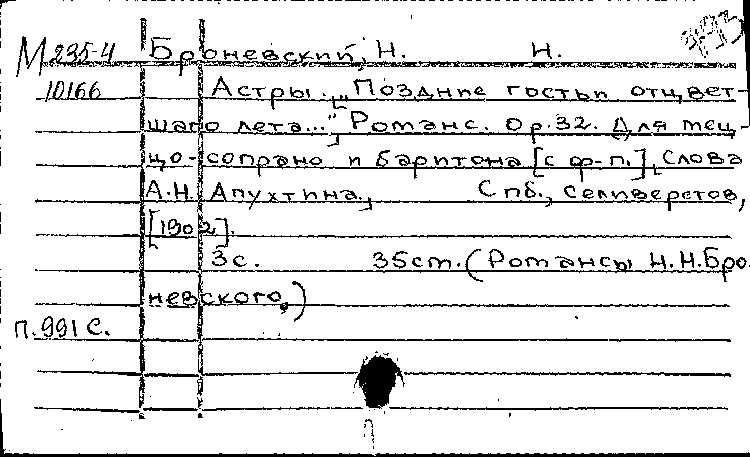 М 235-4 Броневский, Н. Н.
10166 Астры. „Поздние гостьи отцвет-
шаго лета..." Романс. Op.32. Для мец-
цо-сопрано и баритона [с ф-п.], Слова
А.Н. Апухтина, Спб., Селиверстов,
[1902].
3с. 35cm. (Романсы Н.Н.Бро-
невского,)
п.991 С.